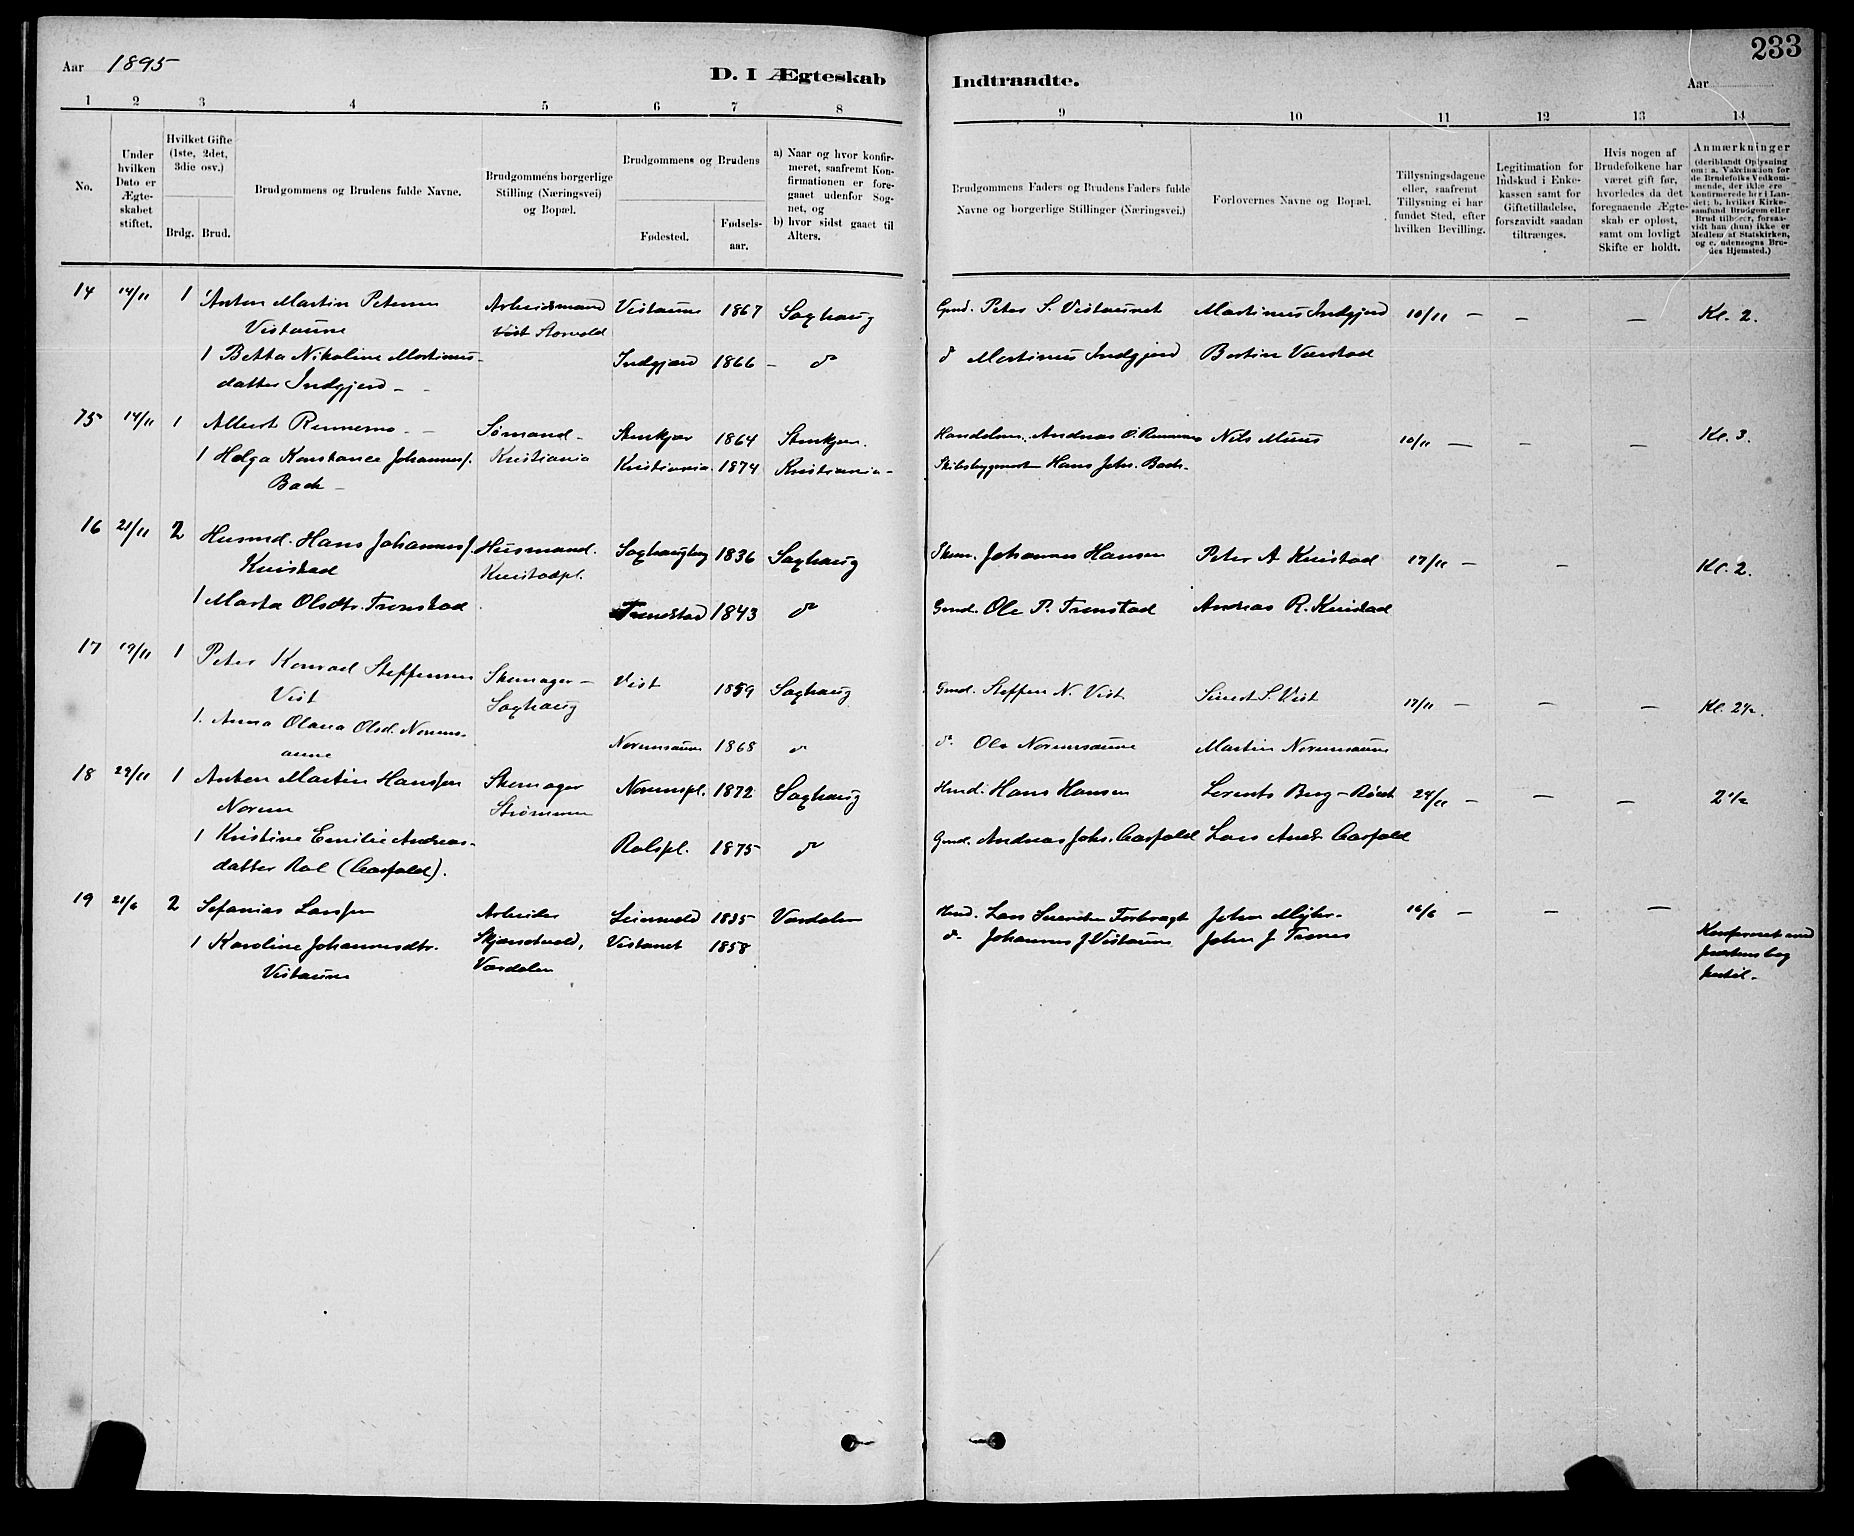 Aar 1895
D. I Ægteskab
Indtraadte.
233
Aar
1 2 3 4 5 6 7 8
9 10 11 12 13 14
No.
Under hvilken Dato er Ægteskabet stiftet.
Hvilket Gifte (1ste, 2det, 3die osv.)
Brdg. Brud.
Brudgommens og Brudens fulde Navne.
Brudgommens borgerlige Stilling (Næringsvei) og Bopæl.
Brudgommens og Brudens
Fødested.
Fødselsaar.
a) Naar og hvor konfirmeret, saafremt Konfirmationen er foregaaet udenfor Sognet, og
b) hvor sidst gaaet til Alters.
Brudgommens Faders og Brudens Faders fulde Navne og borgerlige Stillinger (Næringsvei.)
Forlovernes Navne og Bopæl.
Tillysningsdagene eller, saafremt Tillysning ei har fundet Sted, efter hvilken Bevilling.
Legitimation for Indskud i Enkekassen samt for Giftetilladelse, forsaavidt saadan tiltrænges.
Hvis nogen af Brudefolkene har været gift før, hvorledes da det foregaaende Ægteskab er opløst, samt om lovligt Skifte er holdt.
Anmærkninger (deriblandt Oplysning om: a. Vakcination for de Brudefolks Vedkommende, der ikke ere konfirmerede her i Landet; b. hvilket Kirkesamfund Brudgom eller Brud tilhører, forsaavidt han (hun) ikke er Medlem af Statskirken, og c. udensogns Brudes Hjemsted.)
14 14/11 1 Anton Martin Petersen Arbeidsmand Vistaune 1867 Saxhaug Gmd. Peter S. Vistaunet Martinus Indgjerd 10/11 — — — Kl. 2.
Vistaune Vist
1 Betta Nikoline Martinus- Indgjerd 1866 — d° d° Martinus Indgjerd
datter Indgjerd —
15 14/11 1 Albert Sømand — Stenkjær 1864 Stenkjær. Andreas Nils 10/11 — — — Kl. 3.
1 Helga Konstance Johannesf. Kristiania Kristiania. 1874 Kristiania — Hans Johs. Bach.
Bach —
16 21/11 2 Husmd. Hans Johannesf. Husmand. 1836 Saxhaug Johannes Hansen Peter A Kvistad 17/11 — — Kl. 2.
Kvistad Kvistadpl.
1 Marta Olsdtr. Trenstad Trenstad 1843 d° Gmd. Ole P. Trenstad Andreas R. Kvistad
17 19/11 1 Peter Konrad Steffensen Skomager — Vist 1859 Saxhaug Gmd. Steffen N. Vist S. Vist 17/11 — — — Kl. 2½.
Vist Saxhaug
1. Anna Olava Olsd. Norems-
aune Noremsaune 1868 d° d° Ole Noremsaune Martin Noremsaune
18 29/11 1 Anton Martin Hansen Skomager Noremspl. 1872 Saxhaug Hmd. Hans Hansen Lorents Berg — 24/11 — — — 2½
Norem Strømmen
1 Kristine Emilie Andreas- Rolspl. 1875 d° Gmd. Andreas Johs. Aasfald Lars Andr. Aasfald
datter Rol (Aasfald).
19 21/6 2 Sefanias Larssen Arbeider 1835 Værdalen Hmd. Lars 16/6 — — —
1 Karoline Johannesdtr. Vistaunet 1858 d° Johannes J Vistaune John J
Vistaune Værdalen